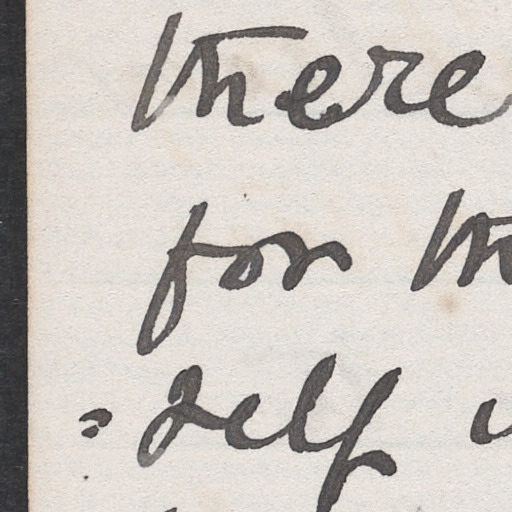 there
for th
=self